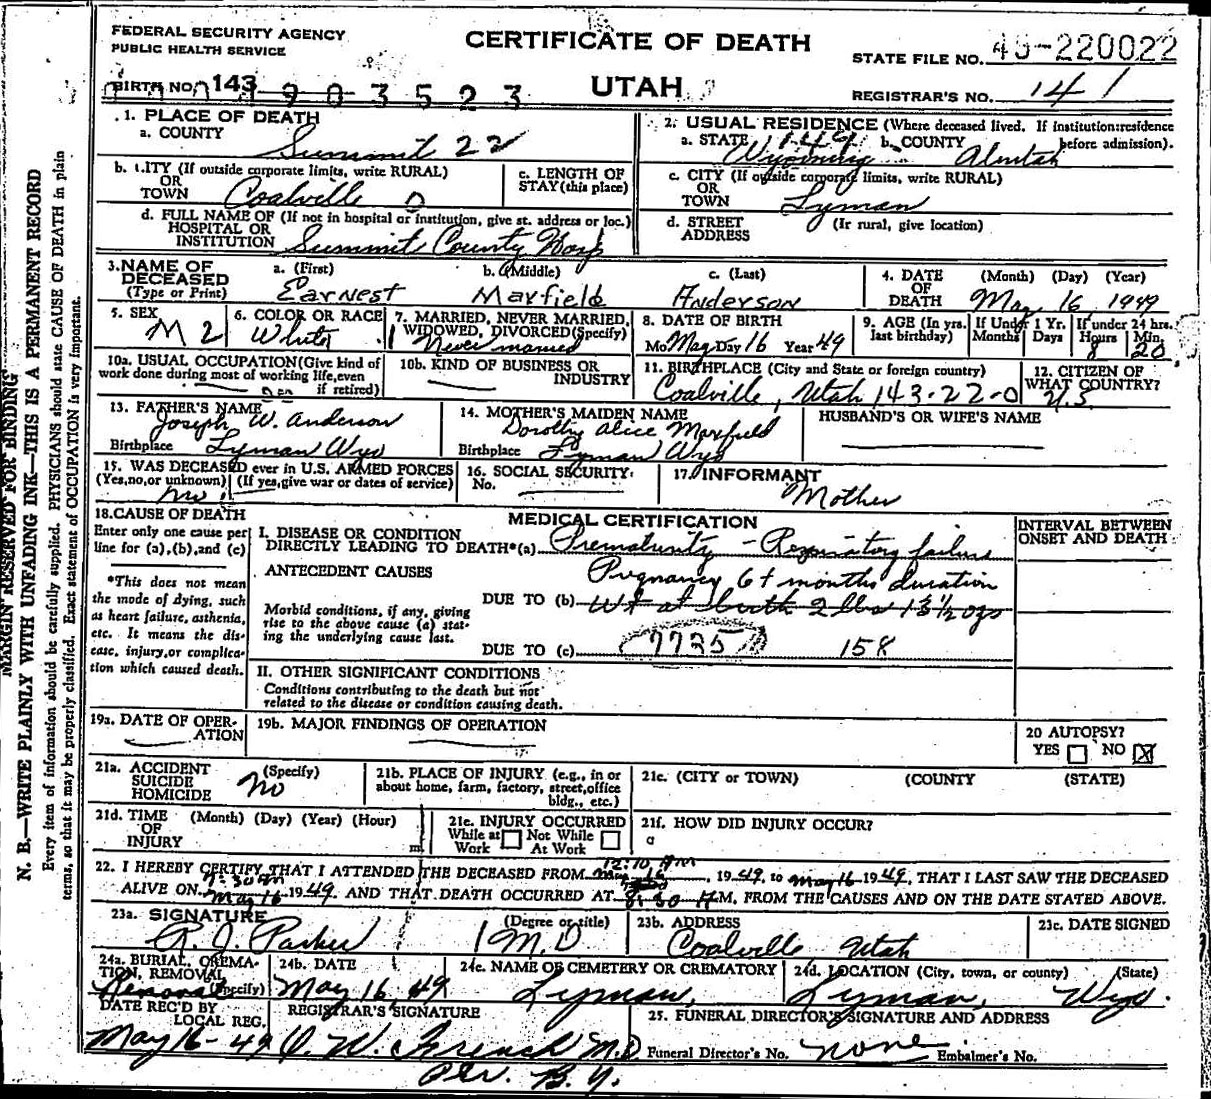 FEDERAL SECURITY AGENCY
PUBLIC HEALTH SERVICE
CERTIFICATE OF DEATH
UTAH
STATE FILE NO. 49-220022
REGISTRAR'S NO. 141
BIRTH NO. 143 903523
1. PLACE OF DEATH
a. COUNTY Summit 22
b. CITY (If outside corporate limits, write RURAL)
OR
TOWN Coalville 0
c. LENGTH OF
STAY (this place)
d. FULL NAME OF (If not in hospital or institution, give st. address or loc.)
HOSPITAL OR
INSTITUTION Summit County Hosp
2. USUAL RESIDENCE (Where deceased lived. If institution:residence
before admission).
a. STATE 149 Wyoming b. COUNTY
c. CITY (If outside corporate limits, write RURAL)
OR
TOWN Lyman
d. STREET (If rural, give location)
ADDRESS
3. NAME OF
DECEASED
(Type or Print)
a. (First) b. (Middle) c. (Last)
Earnest Maxfield Anderson
4. DATE (Month) (Day) (Year)
OF
DEATH May 16, 1949
5. SEX
M 2
6. COLOR OR RACE
White 1
7. MARRIED, NEVER MARRIED,
WIDOWED, DIVORCED (Specify)
1 Never married
8. DATE OF BIRTH
Mo May Day 16 Year 49
9. AGE (In yrs.
last birthday)
If Under 1 Yr.
Months Days
If under 24 hrs.
Hours Min.
8 20
10a. USUAL OCCUPATION (Give kind of
work done during most of working life, even
if retired)
10b. KIND OF BUSINESS OR
INDUSTRY
11. BIRTHPLACE (City and State or foreign country)
Coalville, Utah 143-22-0
12. CITIZEN OF
WHAT COUNTRY?
U.S.
13. FATHER'S NAME
Joseph W. Anderson
Birthplace Lyman Wyo
14. MOTHER'S MAIDEN NAME
Dorothy Alice Maxfield
Birthplace Lyman Wyo
HUSBAND'S OR WIFE'S NAME
15. WAS DECEASED ever in U.S. ARMED FORCES
(Yes, no, or unknown) (If yes, give war or dates of service)
no
16. SOCIAL SECURITY
No.
17. INFORMANT
Mother
18. CAUSE OF DEATH
Enter only one cause per
line for (a), (b), and (c)
*This does not mean
the mode of dying, such
as heart failure, asthenia,
etc. It means the dis-
ease, injury, or complica-
tion which caused death.
MEDICAL CERTIFICATION
INTERVAL BETWEEN
ONSET AND DEATH
I. DISEASE OR CONDITION
DIRECTLY LEADING TO DEATH*(a) Prematurity - Respiratory failure
ANTECEDENT CAUSES
Pregnancy 6+ months duration
Morbid conditions, if any, giving
rise to the above cause (a) stat-
ing the underlying cause last.
DUE TO (b) Wt at birth 2 lbs 13½ ozs
DUE TO (c) 7735 158
II. OTHER SIGNIFICANT CONDITIONS
Conditions contributing to the death but not
related to the disease or condition causing death.
19a. DATE OF OPER-
ATION
19b. MAJOR FINDINGS OF OPERATION
20 AUTOPSY?
YES NO X
21a. ACCIDENT (Specify)
SUICIDE
HOMICIDE No
21b. PLACE OF INJURY (e.g., in or
about home, farm, factory, street, office
bldg., etc.)
21c. (CITY or TOWN) (COUNTY) (STATE)
21d. TIME (Month) (Day) (Year) (Hour)
OF
INJURY m
21e. INJURY OCCURRED
While at Not While
Work At Work
21f. HOW DID INJURY OCCUR?
22. I HEREBY CERTIFY THAT I ATTENDED THE DECEASED FROM 12:10 AM May 16, 1949, to May 16 1949, THAT I LAST SAW THE DECEASED
ALIVE ON 7:30 AM May 16 1949 AND THAT DEATH OCCURRED AT 8:30 A M., FROM THE CAUSES AND ON THE DATE STATED ABOVE.
23a. SIGNATURE (Degree or title)
R. J. Parker M.D
23b. ADDRESS
Coalville Utah
23c. DATE SIGNED
24a. BURIAL, CREMA-
TION, REMOVAL
(Specify) Removal
24b. DATE
May 16, 49
24c. NAME OF CEMETERY OR CREMATORY
Lyman,
24d. LOCATION (City, town, or county) (State)
Lyman, Wyo.
DATE REC'D BY
LOCAL REG.
May 16-49
REGISTRAR'S SIGNATURE
O. W. French M.D.
Per. B.Y.
25. FUNERAL DIRECTOR'S SIGNATURE AND ADDRESS
Funeral Director's No. none Embalmer's No.
MARGIN RESERVED FOR BINDING
N. B.—WRITE PLAINLY WITH UNFADING INK—THIS IS A PERMANENT RECORD
Every item of information should be carefully supplied. PHYSICIANS should state CAUSE OF DEATH in plain
terms, so that it may be properly classified. Exact statement of OCCUPATION is very important.